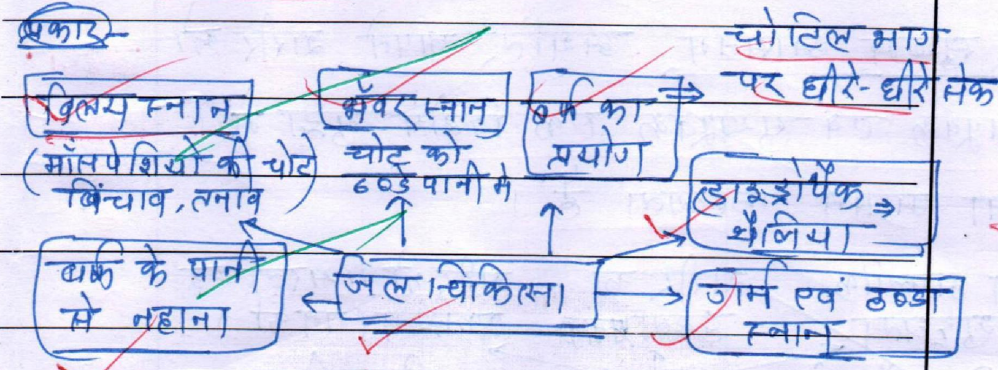 प्रकार-
विलय स्नान
(माँसपेशियों की चोट
खिंचाव, तनाव)
भँवर स्नान
चोट को
ठण्डे पानी मे
बर्फ का
प्रयोग
⇒ चोटिल भाग
पर धीरे-धीरे सेक
हाइड्रोपैक ⇒
थैलिया
बर्फ के पानी
से नहाना
जल चिकित्सा
गर्म एवं ठण्डा
स्नान